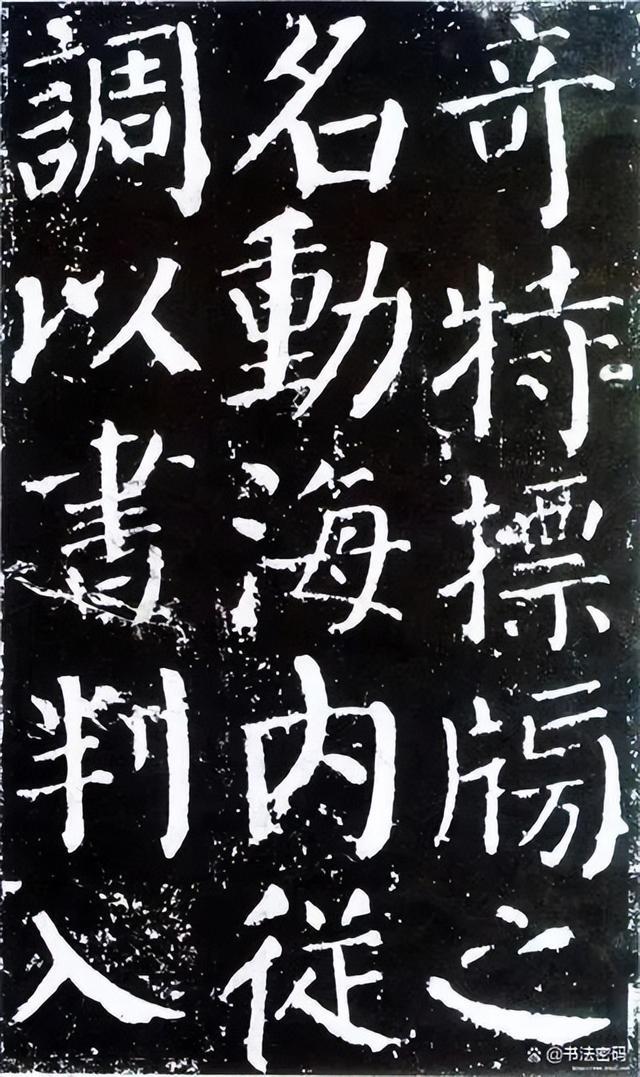 奇特摽牓之
名動海内從
調以書判入
@书法密码